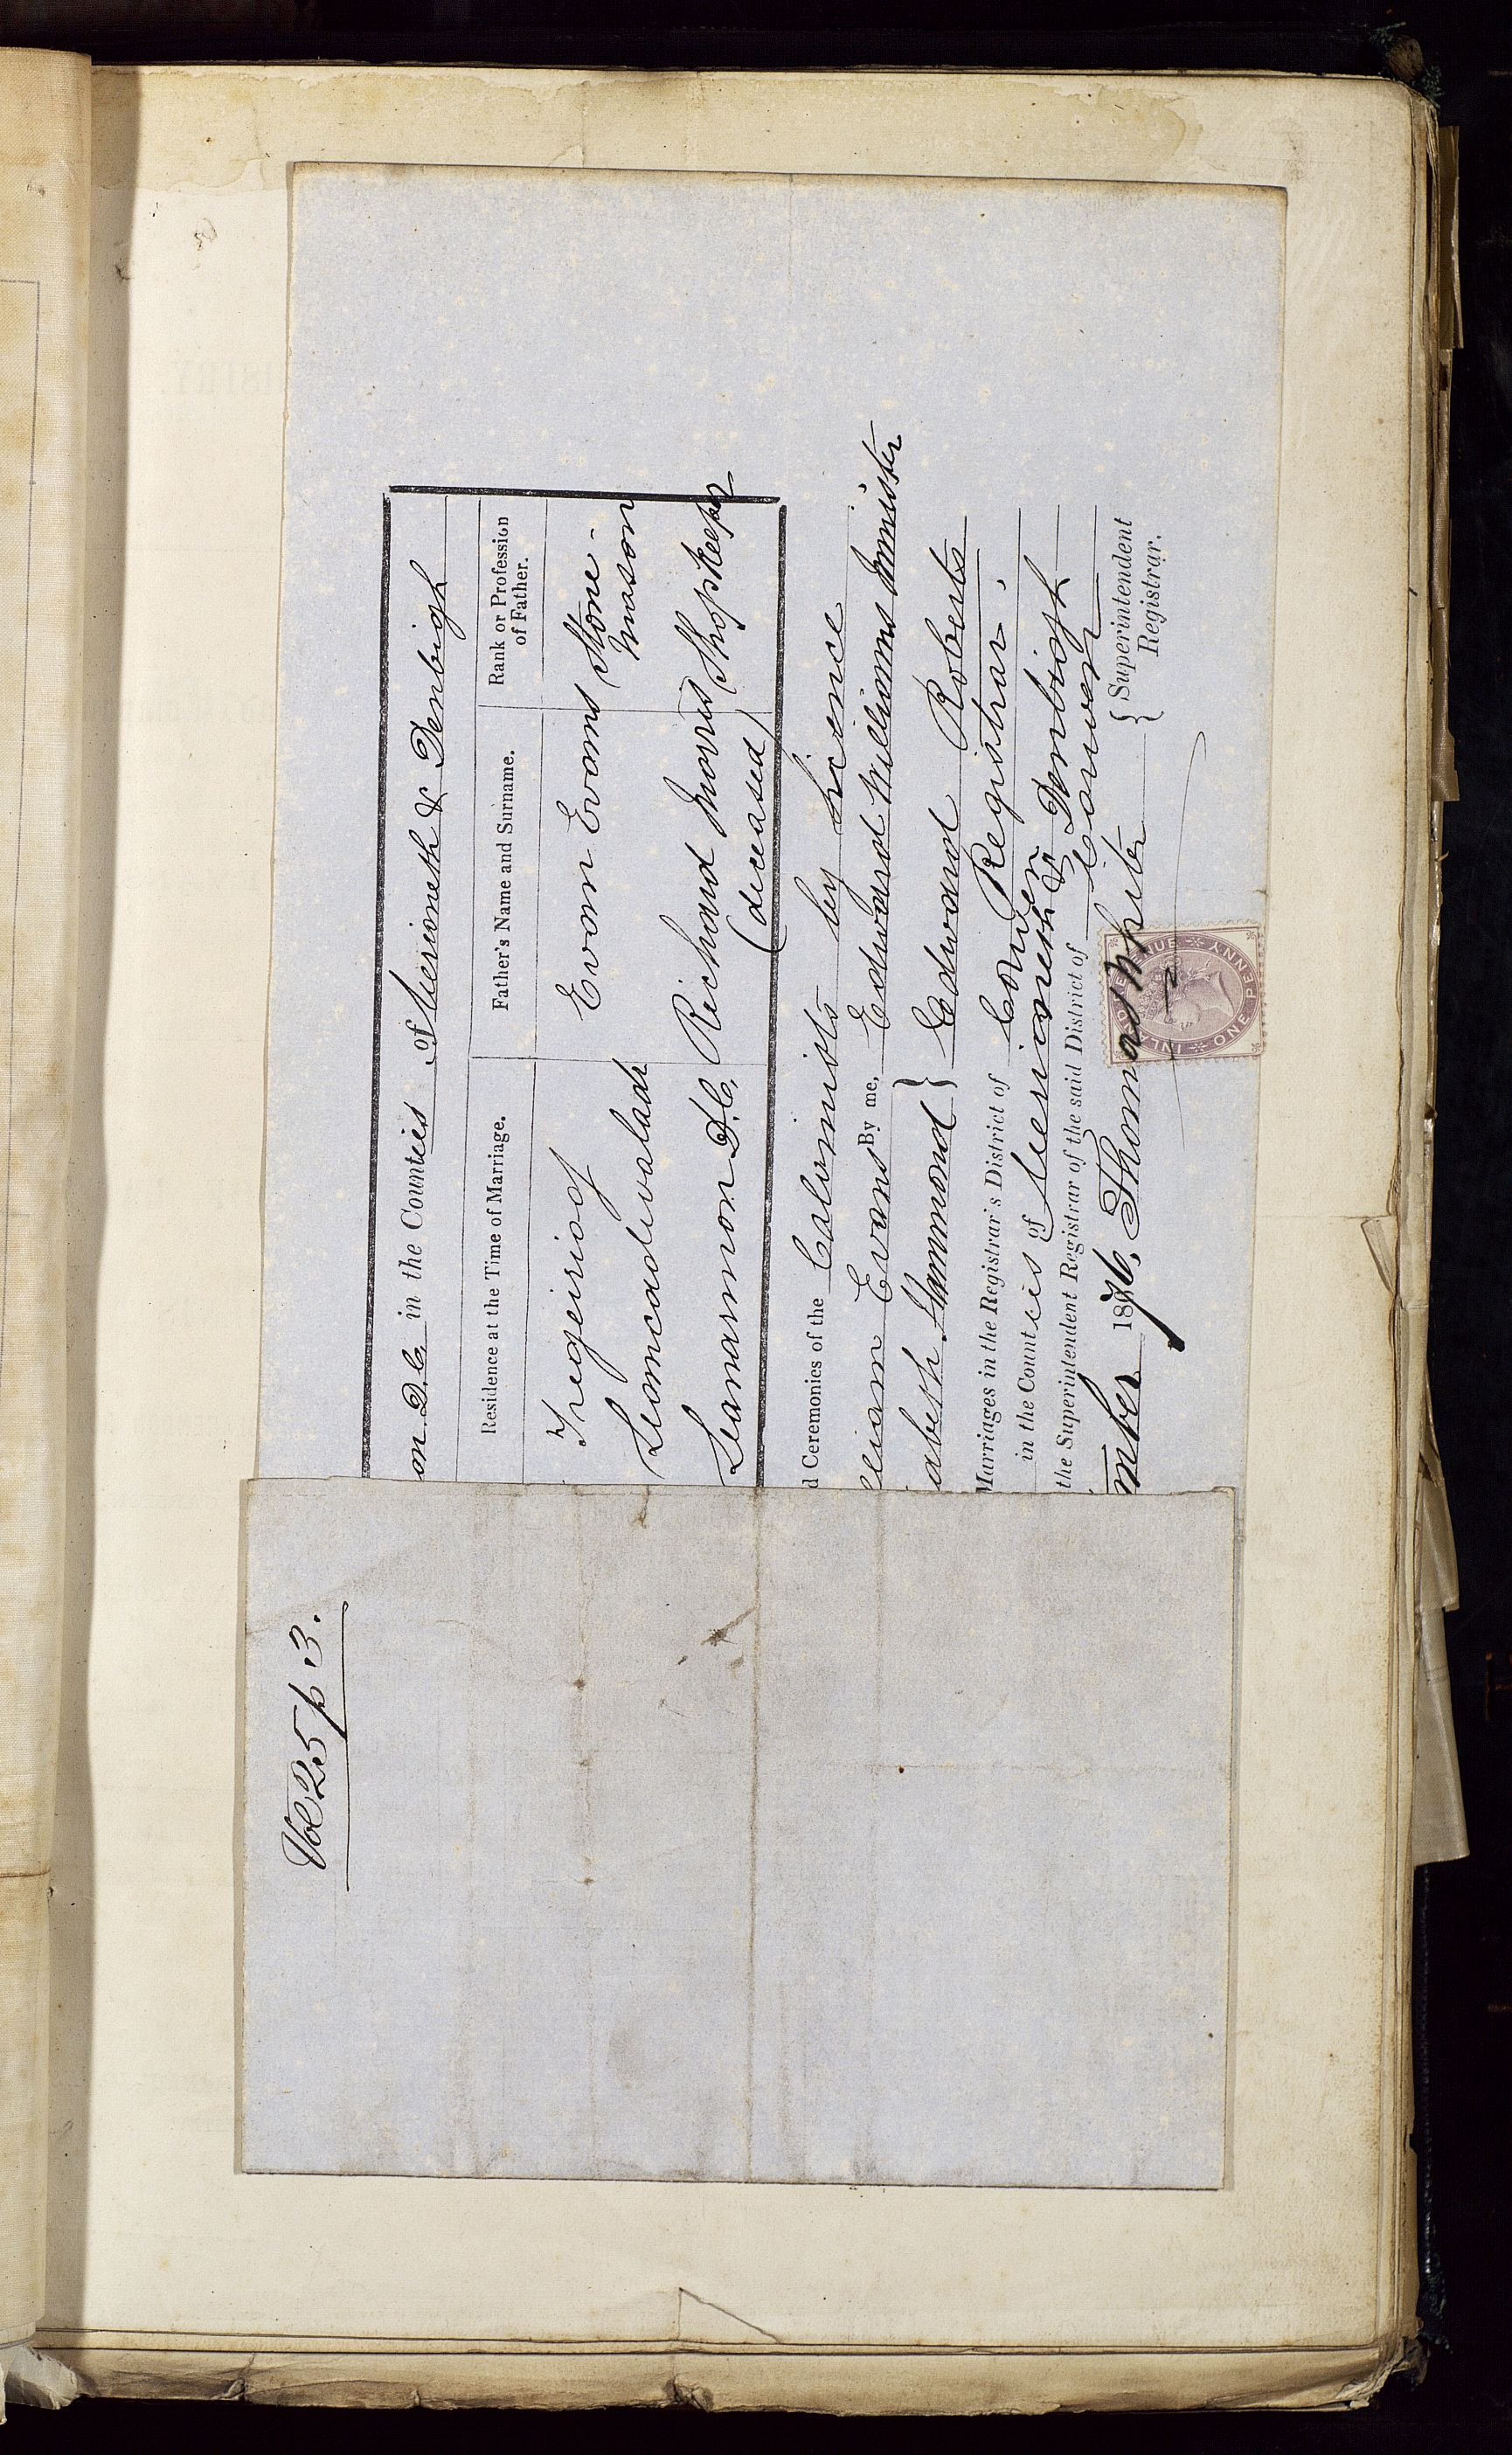 Vol 25 p 13.
on D.C. in the Counties of Merioneth & Denbigh
Residence at the Time of Marriage.
Father's Name and Surname.
Rank or Profession
of Father.
Tregeiriog
Llancadwaladr
Evan Evans
Stone-
mason
Llanarmon D.C.
Richard Morris
(deceased)
Shopkeeper
d Ceremonies of the Calvinists by Licence
lliam Evans By me, Edward Williams Minister
abeth Hammond } Edward Roberts
Registrar.
Marriages in the Registrar's District of Corwen
in the Counties of Merioneth & Denbigh
the Superintendent Registrar of the said District of Corwen
mber 1876, Thomas White { Superintendent
Registrar.
INLAND REVENUE
ONE PENNY